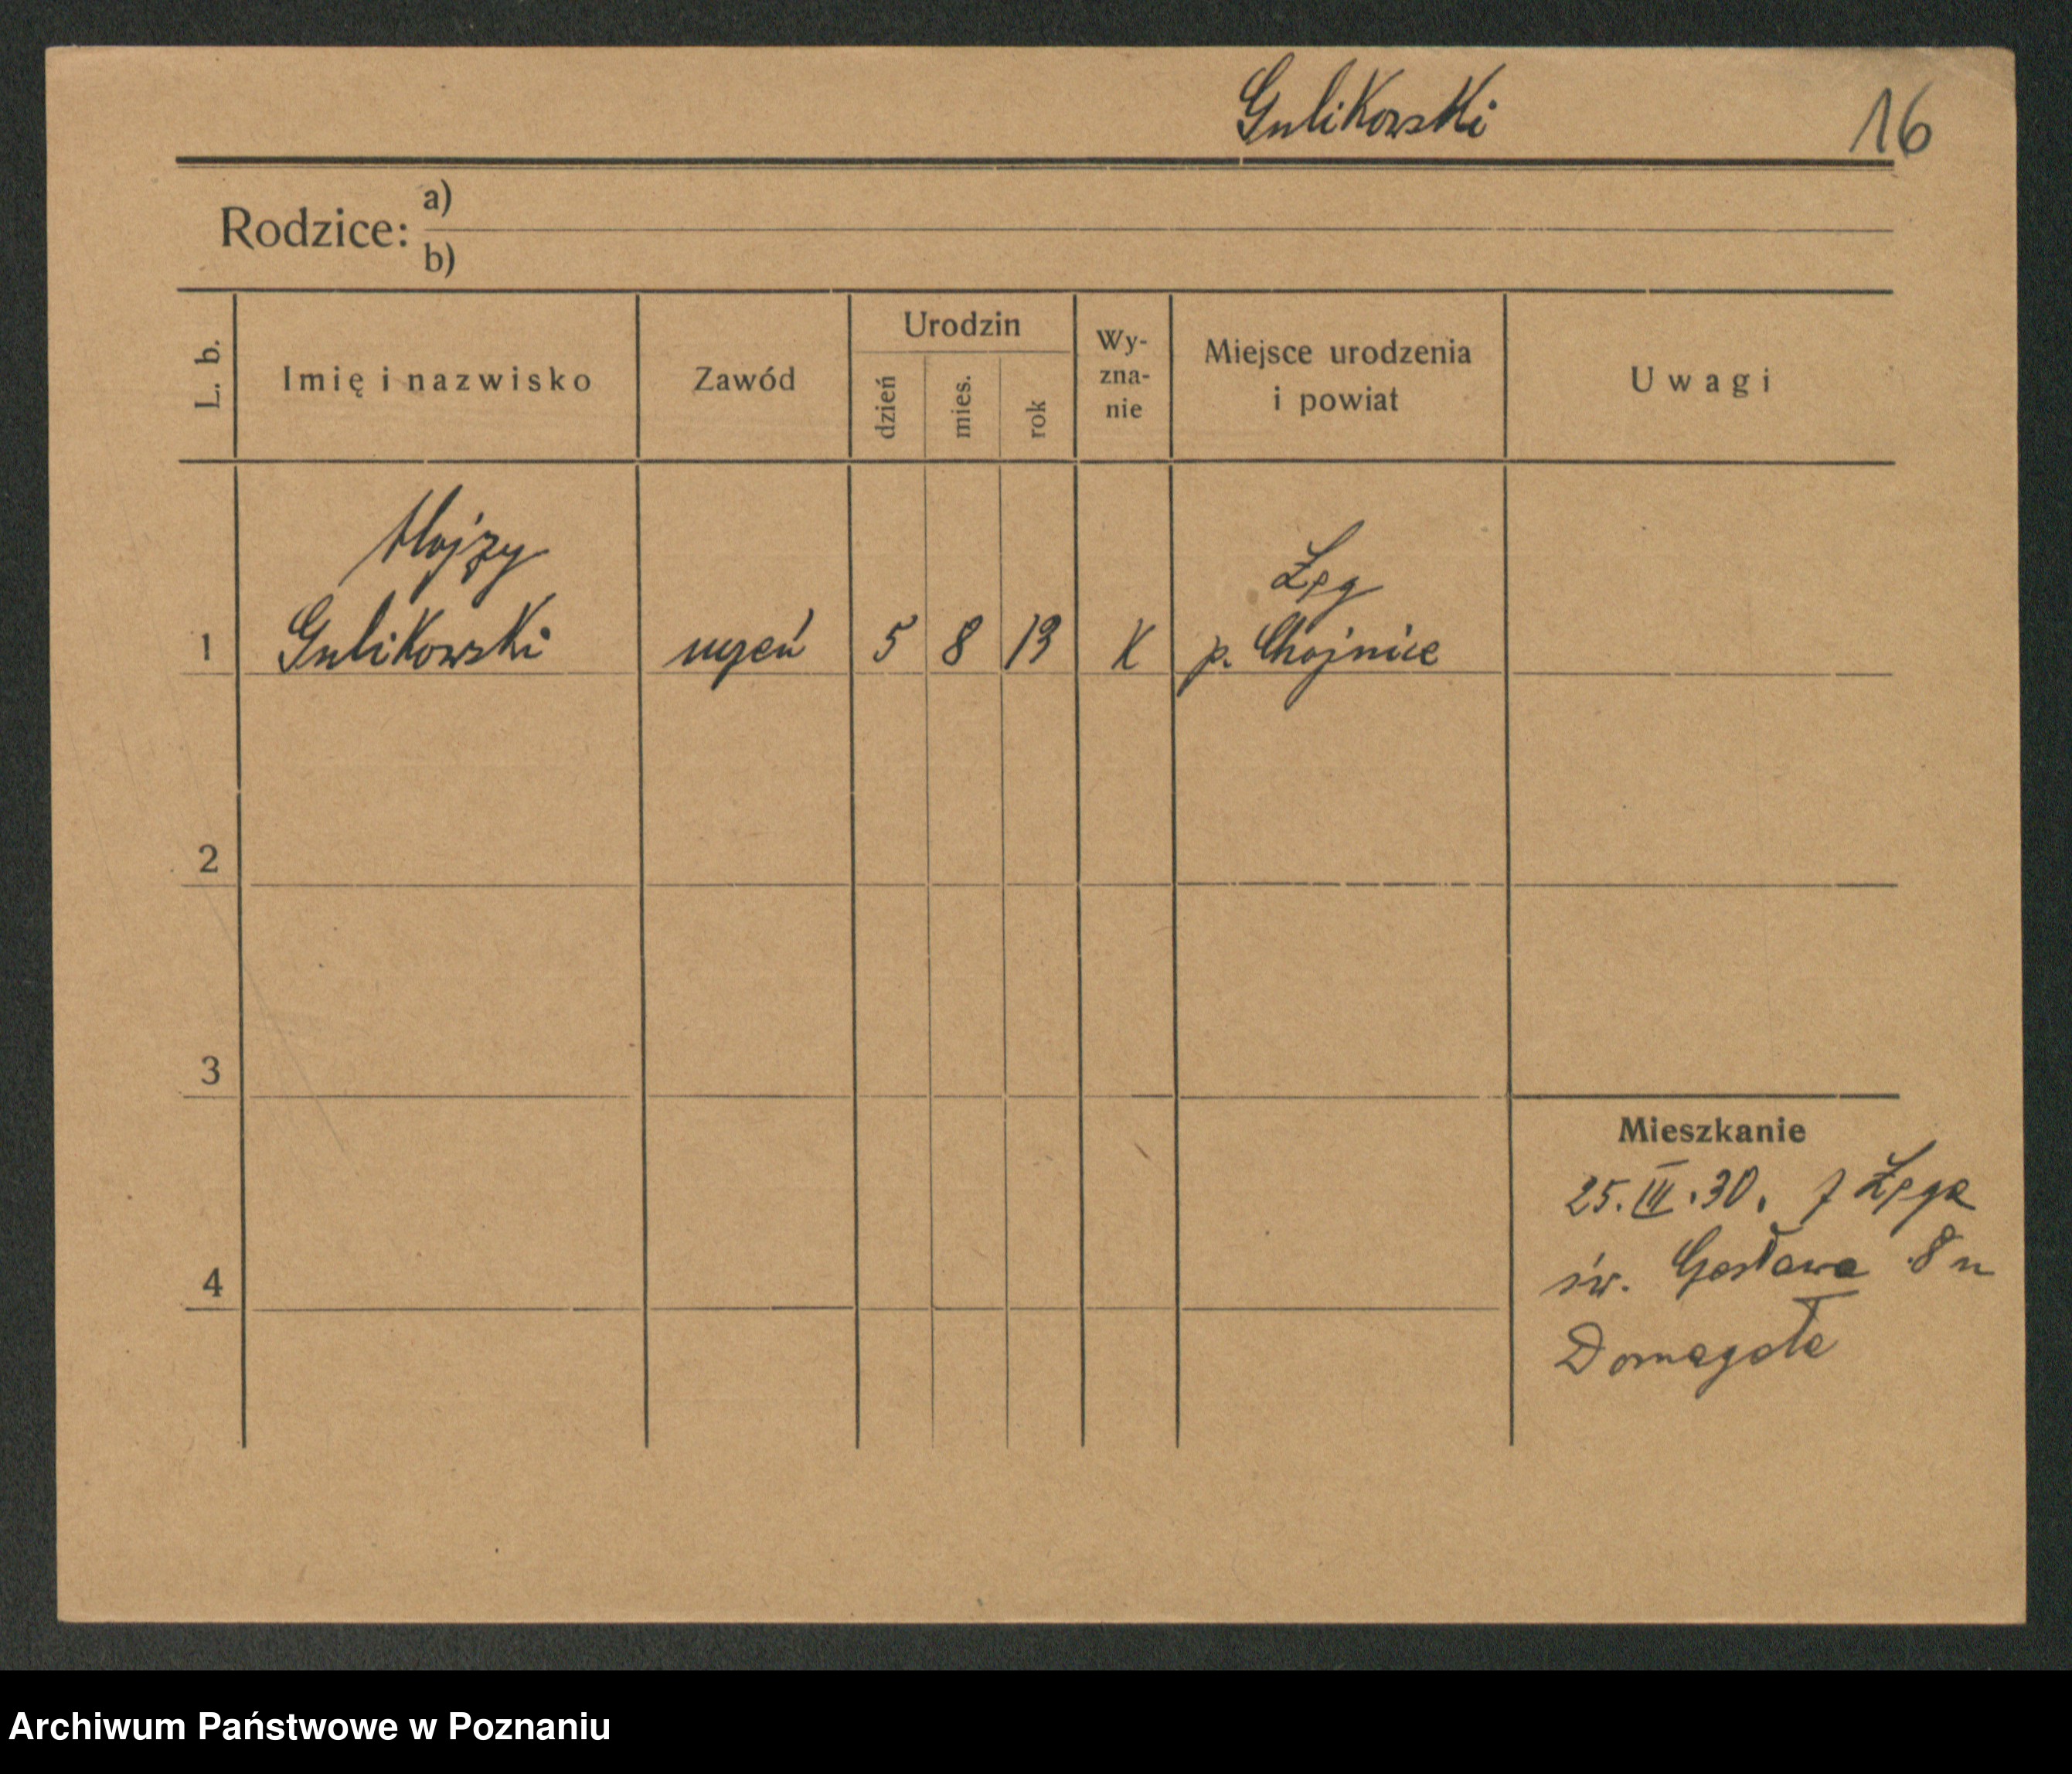 Gulikowski 16
Rodzice: a)
b)
L. b. Imię i nazwisko Zawód Urodzin dzień mies. rok Wy-zna-nie Miejsce urodzenia i powiat Uwagi
Alojzy Łąg
1 Gulikowski uczeń 5 8 13 K p. Chojnice
2
3
Mieszkanie
25.III.30. z Łąga
4 św. 8
Domagała
Archiwum Państwowe w Poznaniu